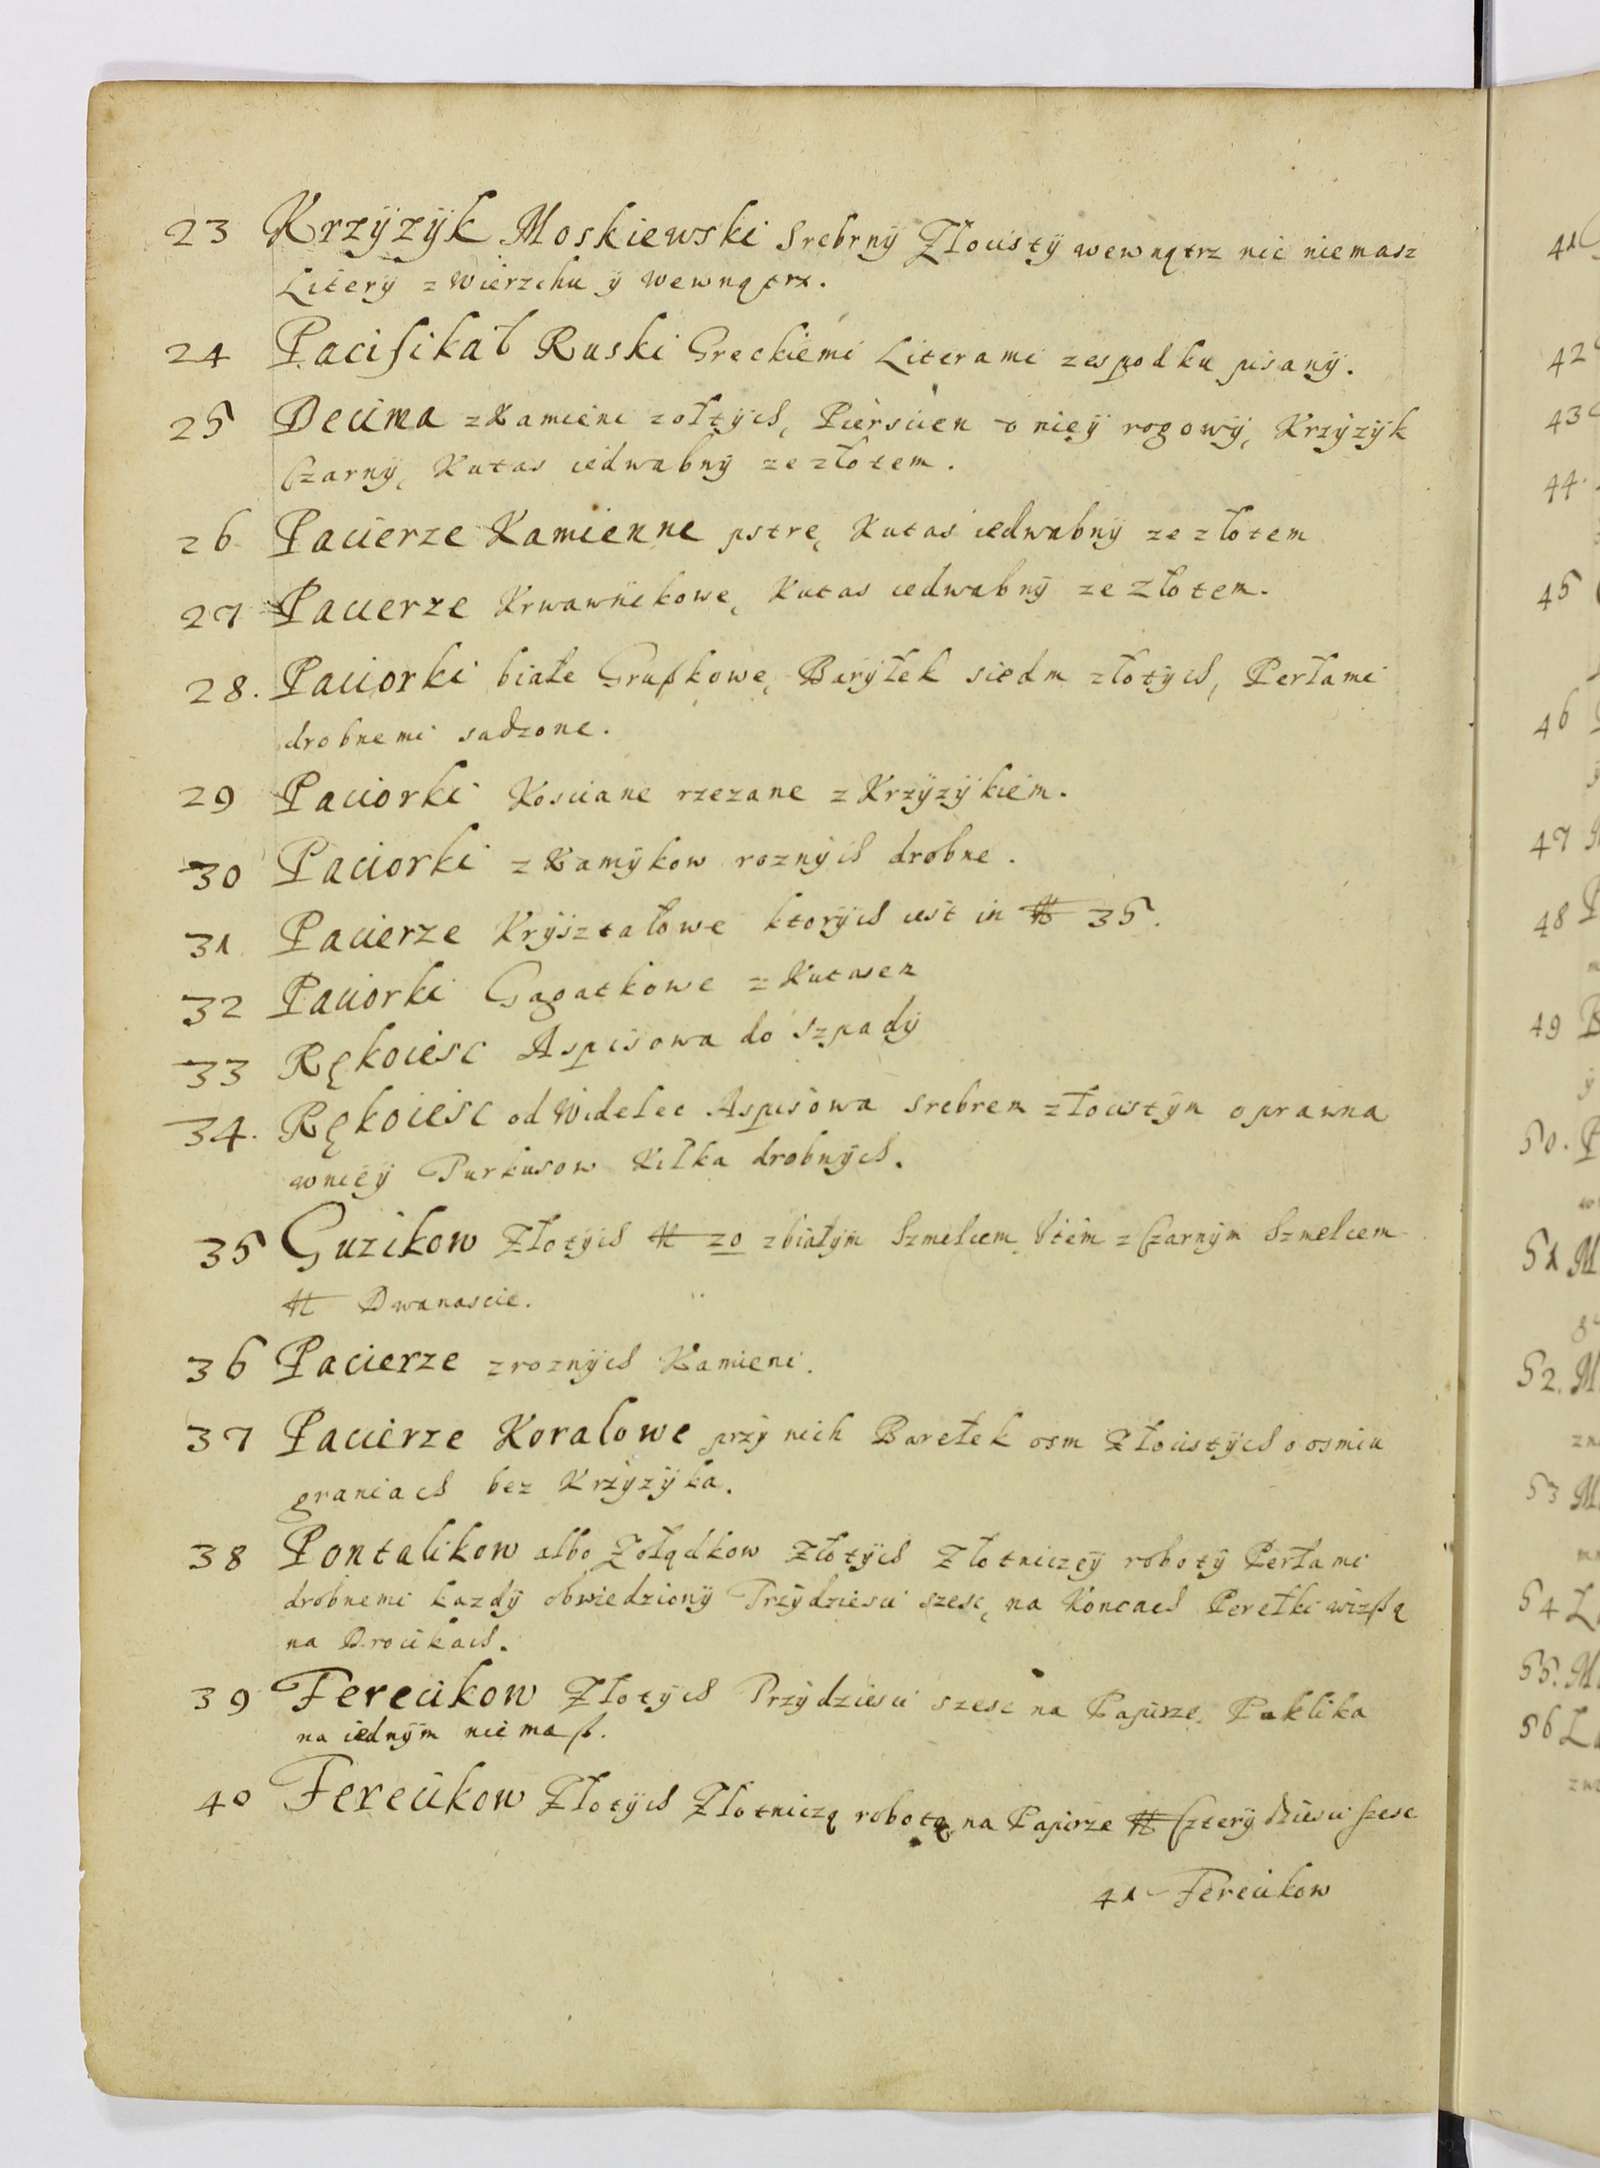 23 Krzÿzÿk Moskiewski Srebrnÿ Złocistÿ wewnątrz nic niemasz
Literÿ z Wierzchu ÿ wewnątrz.
24 Pacifikał Ruski Greckiemi Literami zespodku pisanÿ.
25 Decima z Kamieni zołtÿch, Pierscien v nieÿ rogowÿ, Krzÿzÿk
Czarnÿ, Kutas iedwabnÿ ze złotem.
26 Pacierze Kamienne pstre, Kutas iedwabnÿ ze złotem
27 Pacierze Krwawnikowe, Kutas iedwabnÿ ze złotem.
28. Paciorki białe Gruszkowe, Barÿłek siedm złotÿch, Perłami
drobnemi sadzone.
29 Paciorki Kosciane rzezane z Krzÿzÿkiem.
30 Paciorki z Kamÿkow roznÿch drobne.
31. Pacierze Krÿształowe ktorÿch iest in # 35.
32 Paciorki Gagatkowe z Kutasem
33 Rękoiesc Aspisowa do szpadÿ
34. Rękoiesc od Widelec Aspisowa srebrem złocistÿm oprawna
wnieÿ Turkusow Kilka drobnÿch.
35 Guzikow Złotÿch # 20 z białÿm Szmelcem, Item z Czarnÿm Szmelcem
# Dwanascie.
36 Pacierze z roznÿch Kamieni.
37 Pacierze Koralowe przÿ nich Barełek osm Złocistÿch o osmiu
graniach bez Krzÿzÿka.
38 Pontalikow albo Zołądkow Złotÿch Złotniczeÿ robotÿ Perłami
drobnemi kazdÿ obwiedzionÿ Trzÿdziesci szesc, na Koncach Perełki wiszą
na Drocikach.
39 Ferecikow Złotÿch Trzÿdziesci szesc na Papirze, Puklika
na iednÿm niemasz.
40 Ferecikow Złotÿch Złotniczą robotą, na Papirze # Czterÿdziesci szesc
41 Ferecikow
41
42
43
44.
45
46
47
48 P
49 B
50. P
51 M
52. M
53 M
54 L
55. M
56 L